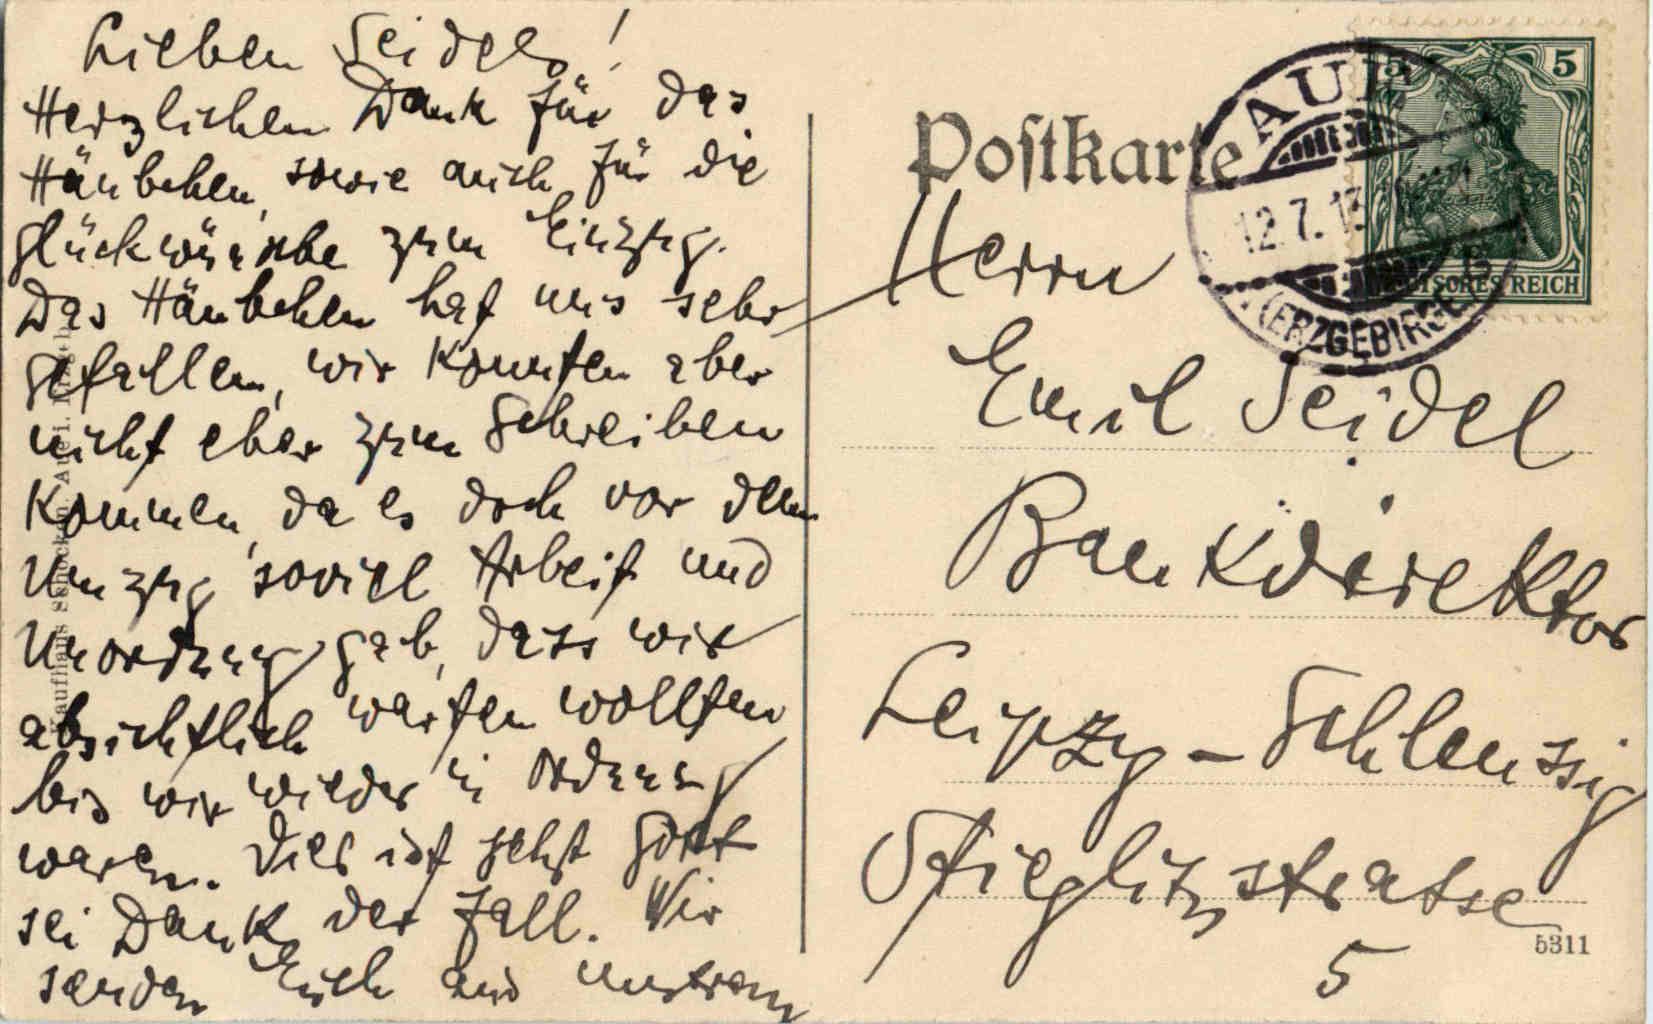 Lieben Seidels!
Herzlichen Dank für das
Häubchen, sowie auch für die
Glückwünsche zum Einzug.
Das Häubchen hat uns sehr
gefallen, wir konnten aber
nicht eher zum Schreiben
kommen, da es doch vor dem
Umzug soviel Arbeit und
Unordnung gab, dass wir
absichtlich warten wollten
bis wir wieder in Ordnung
waren. Dies ist jetzt Gott
sei Dank der Fall. Wir
senden Euch aus unserem
Kaufhaus Schocken, Aue i. Erzgeb.
Postkarte
AUE
12.7.13
(ERZGEBIRGE)
5
DEUTSCHES REICH
Herrn
Emil Seidel
Bankdirektor
Leipzig - Schleussig
Stieglitzstrasse
5
5311